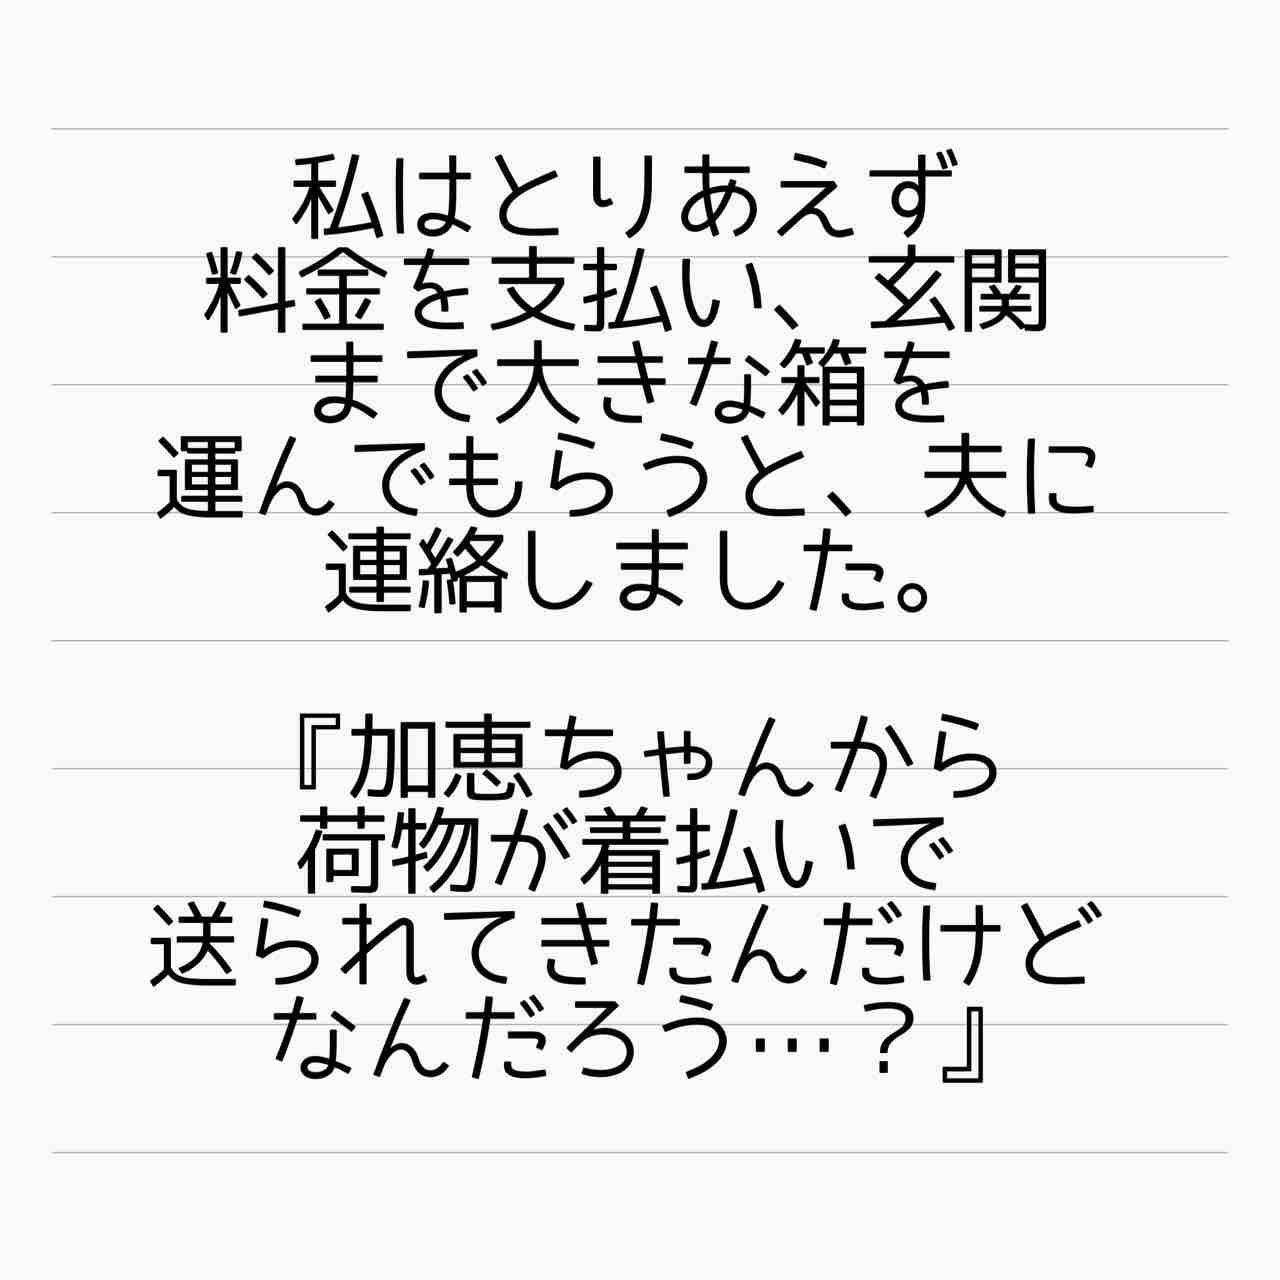 私はとりあえず
料金を支払い、玄関
まで大きな箱を
運んでもらうと、夫に
連絡しました。
『加恵ちゃんから
荷物が着払いで
送られてきたんだけど
なんだろう…？』